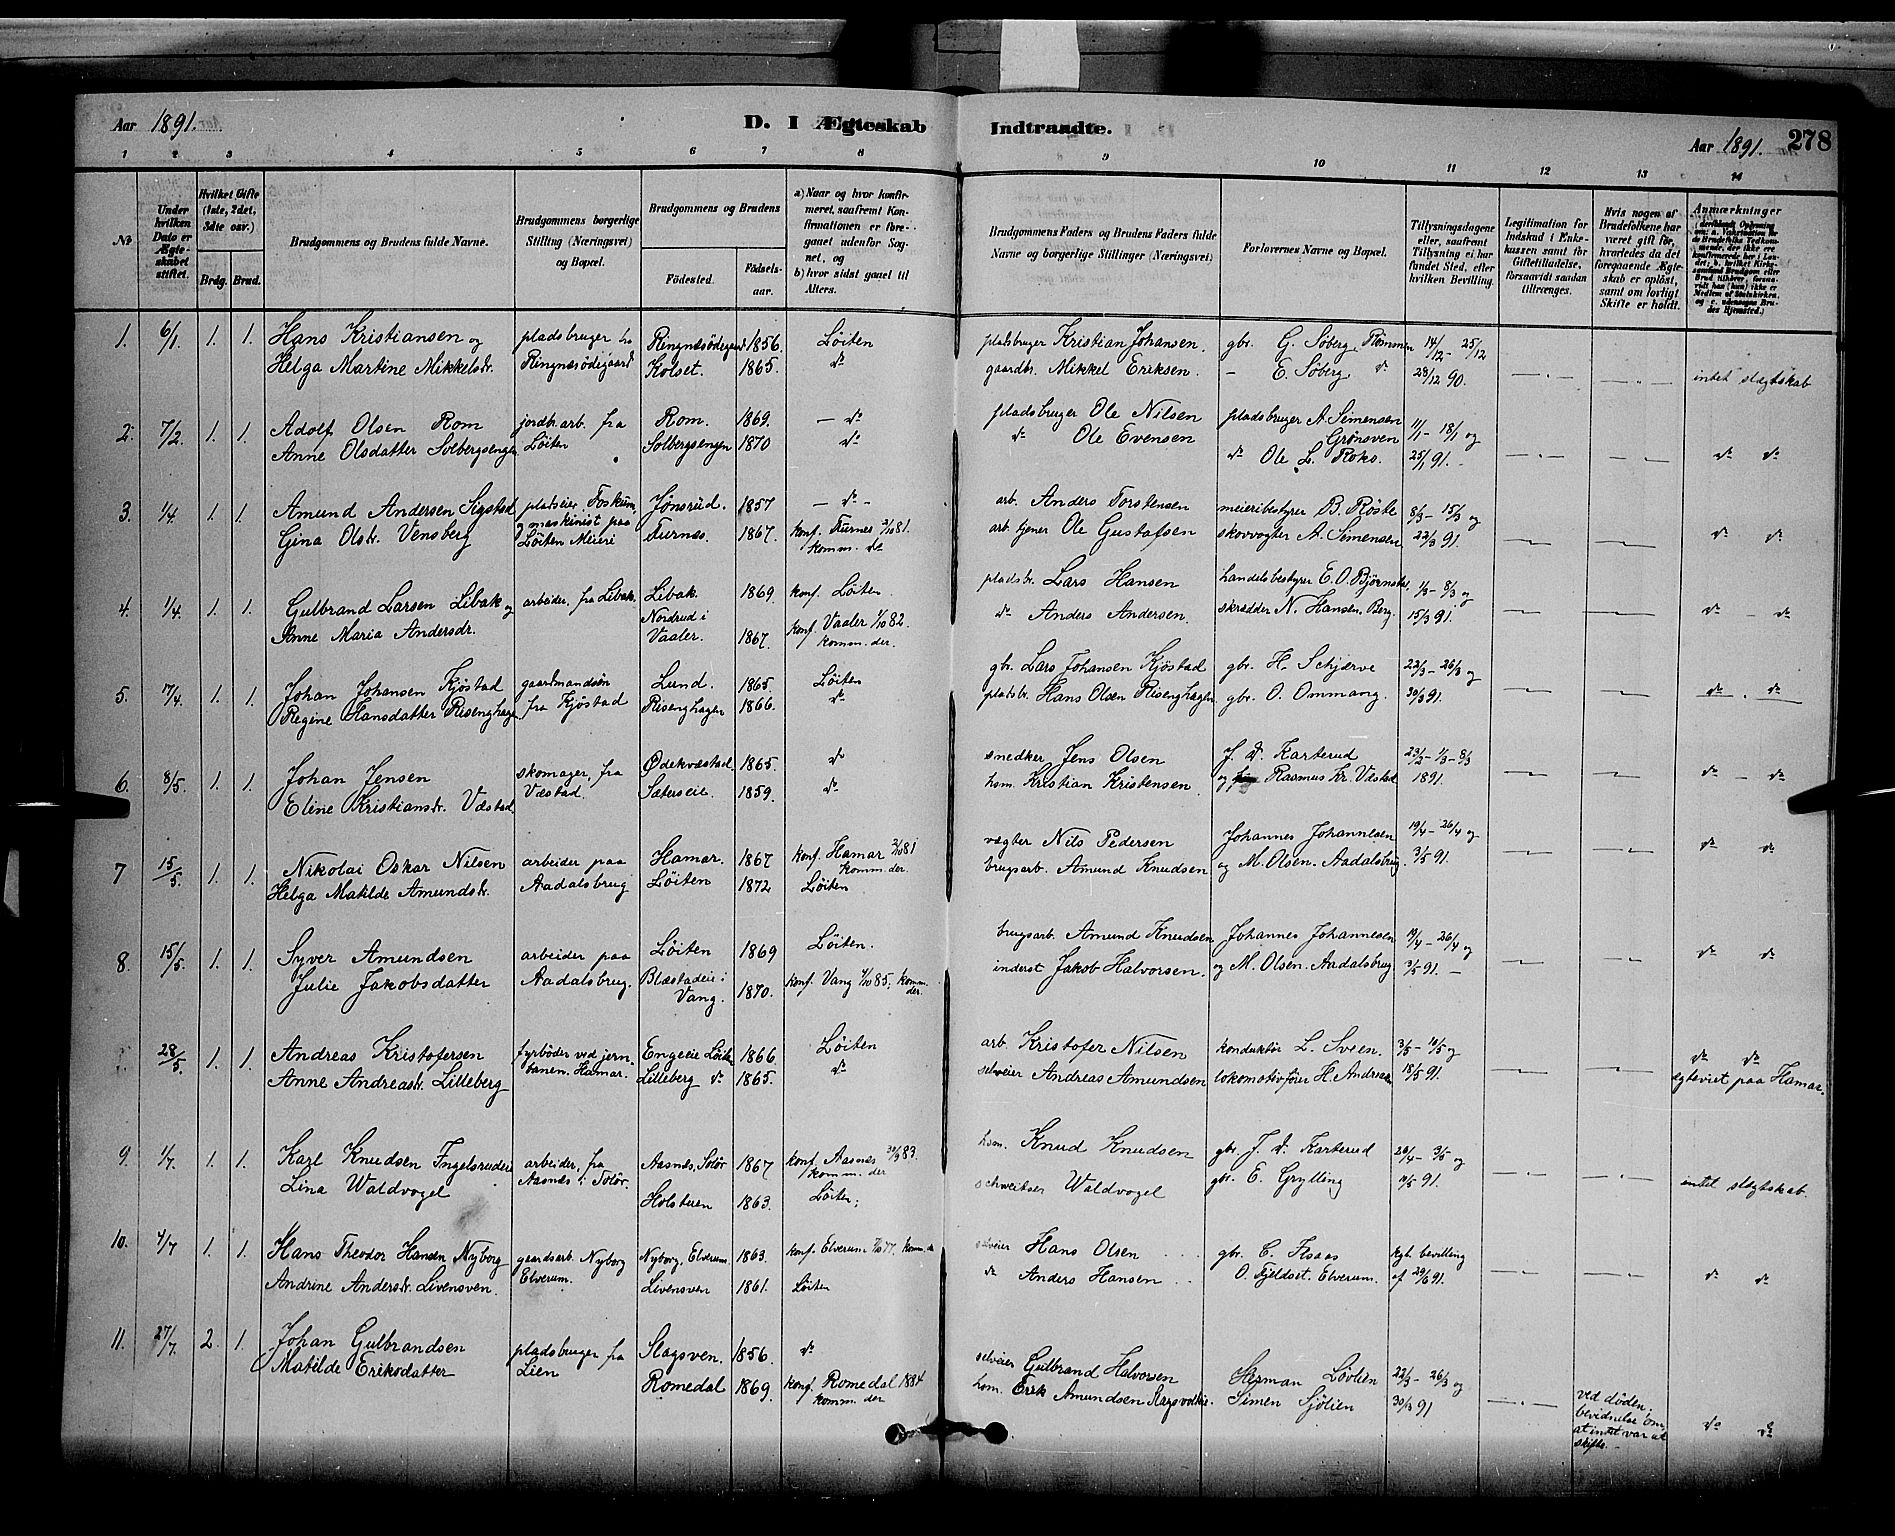 Aar 1891.
D. I Ægteskab Indtraadte.
Aar 1891.
278
1 2 3 4 5 6 7 8 9 10 11 12 13 14
№
Under hvilken Dato er Ægteskabet stiftet.
Hvilket Gifte (1ste, 2det, 3die osv.)
Brdg. Brud.
Brudgommens og Brudens fulde Navne.
Brudgommens borgerlige Stilling (Næringsvei) og Bopæl.
Brudgommens og Brudens
Fødested.
Fødselsaar.
a) Naar og hvor konfirmeret, saafremt Konfirmationen er foregaaet udenfor Sognet, og
b) hvor sidst gaaet til Alters.
Brudgommens Faders og Brudens Faders fulde Navne og borgerlige Stillinger (Næringsvei)
Forlovernes Navne og Bopæl.
Tillysningsdagene eller, saafremt Tillysning ei har fundet Sted, efter hvilken Bevilling.
Legitimation for Indskud i Enkekassen samt for Giftetilladelse, forsaavidt saadan tiltrænges.
Hvis nogen af Brudefolkene har været gift før, hvorledes da det foregaaende Ægteskab er opløst, samt om lovligt Skifte er holdt.
Anmærkninger
1. 6/1 1. 1. Hans Kristiansen og pladsbruger Ringnæsødegaard 1856. Løiten pladsbruger Kristian Johansen. gbr. G. Søberg 14/12 - 25/12
Helga Martine Mikkelsdr. Ringnæsødegaard Kolset. 1865. do gaardbr. Mikkel Eriksen. - E. Søberg do 28/12 90. intet slægtskab
2. 7/2. 1. 1. Adolf Olsen Rom jordb. arb. fra Rom. 1869. - do pladsbruger Ole Nilsen pladsbruger A. Simensen Grønsven 11/1 - 18/1 og
Anne Olsdatter Solbergsengen Løiten Solbergsengen 1870 do do Ole Evensen do Ole L. Roko. 25/1 91. do do
3. 1/4. 1. 1. Amund Andersen Sigstad maskinist paa Jønsrud. 1857 - do - arb. Anders Torstensen meieribestyrer B. Røste 8/3 - 15/3 og
Gina Olsdr. Vensberg Løiten Meieri Furnes. 1867. konf. Furnes 2/10 81. komm. do arb. tjener Ole Gustafsen skovvogter A. Simensen 22/3 91. do do
4. 1/4. 1. 1. Gulbrand Larsen Libak og arbeider, fra Libak. Libak. 1869. konf. Løiten pladsbr. Lars Hansen handelsbestyrer E. O. Bjørnstad. 1/3 - 8/3 og
Anne Maria Andersdr. Nordrud i Vaaler. 1867. konf. Vaaler 1/10 82. komm. der. do Anders Andersen. skrædder N. Hansen Berg. 15/3 91. do - do
5. 17/4. 1. 1. Johan Johansen Kjøstad gaardmandsøn Lund. 1865. Løiten gbr. Lars Johansen Kjøstad gbr. H. Schjærve 22/3 - 26/3 og
Regine Hansdatter Risenghagen fra Kjøstad Risenghagen 1866. do pladsbr. Hans Olsen Risenghagen gbr. O. Ommang. 30/3 91. do . do
6. 8/5. 1. 1. Johan Jensen skomager, fra Ødekvæstad. 1865. do snedker Jens Olsen J. D. Karterud 23/2 - 1/3 - 8/3
Eline Kristiansdr. Væstad. Væstad. Sæterseie. 1859. do hsm. Kristian Kristensen og Rasmus Kr. Væstad 1891. do - do
7 15/5. 1. 1. Nikolai Oskar Nilsen arbeider paa Hamar. 1867 konf. Hamar 2/10 81 komm. der. vægter Nils Pedersen Johannes Johannesen 19/4 - 26/4 og
Helga Matilde Amundsdr. Aadalsbrug Løiten 1872 Løiten brugsarb. Amund Knudsen og M. Olsen. Aadalsbrug. 3/5 91. do do
8. 15/5. 1. 1. Syver Amundsen arbeider paa Løiten 1869 Løiten. brugsarb. Amund Knudsen Johannes Johannesen 19/4 - 26/4 og
Julie Jakobsdatter Aadalsbrug. Blæstadeie i Vang. 1870. konf. Vang 1/10 85. komm. der. inderst Jakob Halvorsen. og M. Olsen. Aadalsbrug 3/5 91. - do do
28/5. 1. 1. Andreas Kristofersen fyrbøder ved jern- Engeeie Løiten 1866 Løiten arb. Kristofer Nilsen konduktør L. Sveen. 3/5 - 10/5 og do do
Anne Andreasdr. Lilleberg banen. Hamar. Lilleberg do 1865. do selveier Andreas Amundsen lokomotivfører H. Andreasen 18/5 91. ægteviet paa Hamar.
9. 1/7. 1. 1. Karl Knudsen Ingelsrudeie arbeider, fra Aasnes, Solør 1867 konf. Aasnes 30/9 83. komm. der hsm. Knud Knudsen gbr. J. D. Karterud 26/4 - 3/5 og
Lina Waldvogel Aasnes i Solør. Holstuen 1863. Løiten; schweitser Waldvogel gbr. E. Grylling 10/5 91. intet slægtskab.
10. 4/7 1. 1. Hans Theodor Hansen Nyborg gaardsarb. Nyborg Nyborg, Elverum 1863. konf. Elverum 7/10 77. komm. do selveier Hans Olsen gbr. C. Flsaas kgl. bevilling
Andrine Andersdr. Livensven. Elverum. Livensven 1861. Løiten do Anders Hansen O. Fjeldset. Elverum. af 29/6 91. do do
11. 27/7. 2. 1. Johan Gulbrandsen pladsbruger fra Slagsven. 1856. do selveier Gulbrand Halvorsen Herman Løvlien 22/3 - 26/3 og
Matilde Eriksdatter Lien Romedal 1869. konf. Romedal 1884 komm. der hsm. Erik Amundsen Simen Sjølien 30/3 91 ved døden, bevidnelse om at intet var at skifte. do do